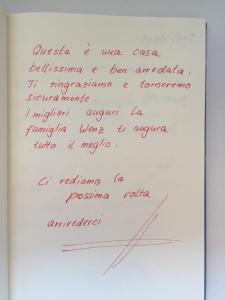 Questa è una casa
bellissima e ben arredata.
Ti ringraziamo e torneremo
sicuramente.
I migliori auguri la
famiglia Wenz ti augura
tutto il meglio.
Ci rediamo la
prossima volta
arrirederci